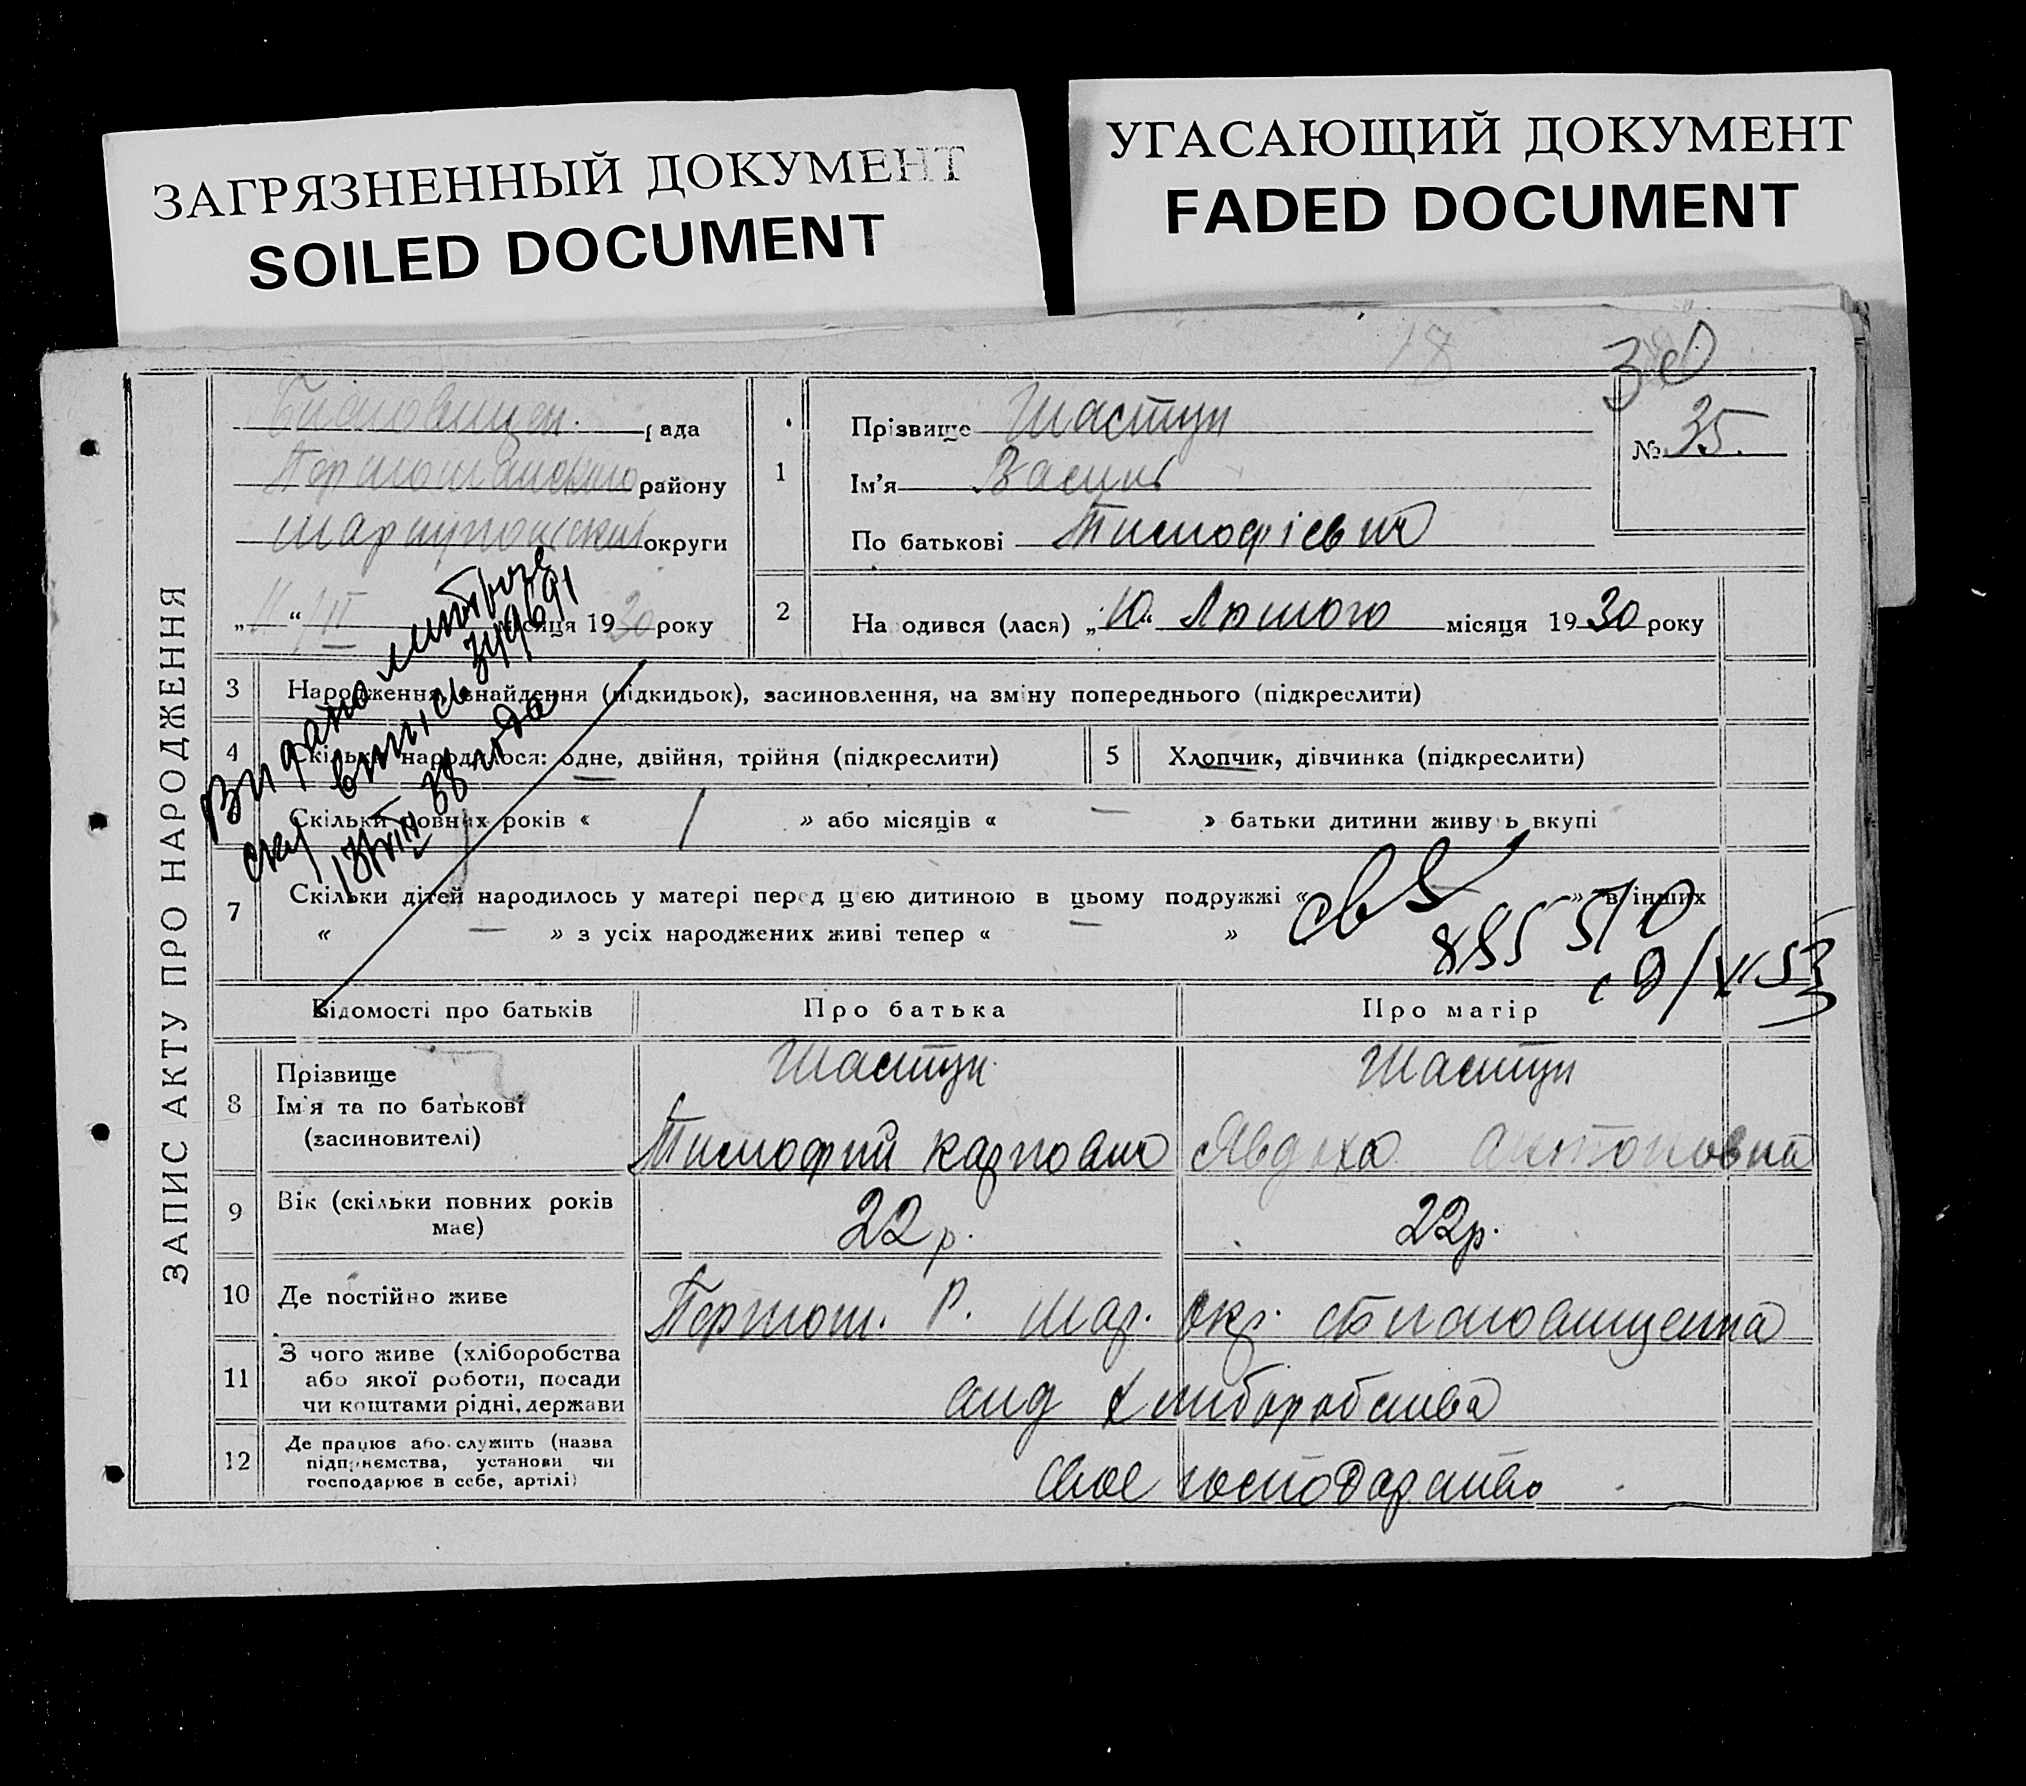 ЗАГРЯЗНЕННЫЙ ДОКУМЕНТ
SOILED DOCUMENT
УГАСАЮЩИЙ ДОКУМЕНТ
FADED DOCUMENT
18
30
ЗАПИС АКТУ ПРО НАРОДЖЕННЯ
рада
району
округи
„11“ III місяця 1930 року
1
Прізвище Шастун
Ім'я Василь
По батькові Тимофієвич
№ 35.
2
На одився (лася) „10“ Лютого місяця 1930 року
3 Народження, знайдення (підкидьок), засиновлення, на зміну попереднього (підкреслити)
4 Скільки народилося: одне, двійня, трійня (підкреслити)
5 Хлопчик, дівчинка (підкреслити)
Скільки повних років « 1 » або місяців « — » батьки дитини живуть вкупі
7 Скільки дітей народилось у матері перед цією дитиною в цьому подружжі « — » в інших
« — » з усіх народжених живі тепер « — »
Видано
38 года
885510
53
Відомості про батьків
Про батька
Про матір
8 Прізвище
Ім'я та по батькові
(засиновителі)
Шастун
Тимофий Карпович
Шастун
Явдоха Антоновна
9 Вік (скільки повних років
має)
22 р.
22 р.
10 Де постійно живе
Р. Мар. Окр.
11 З чого живе (хліборобства
або якої роботи, посади
чи коштами рідні, держави
від хліборобства
12 Де працює або служить (назва
підприємства, установи чи
господарює в себе, артілі)
Своє господарство